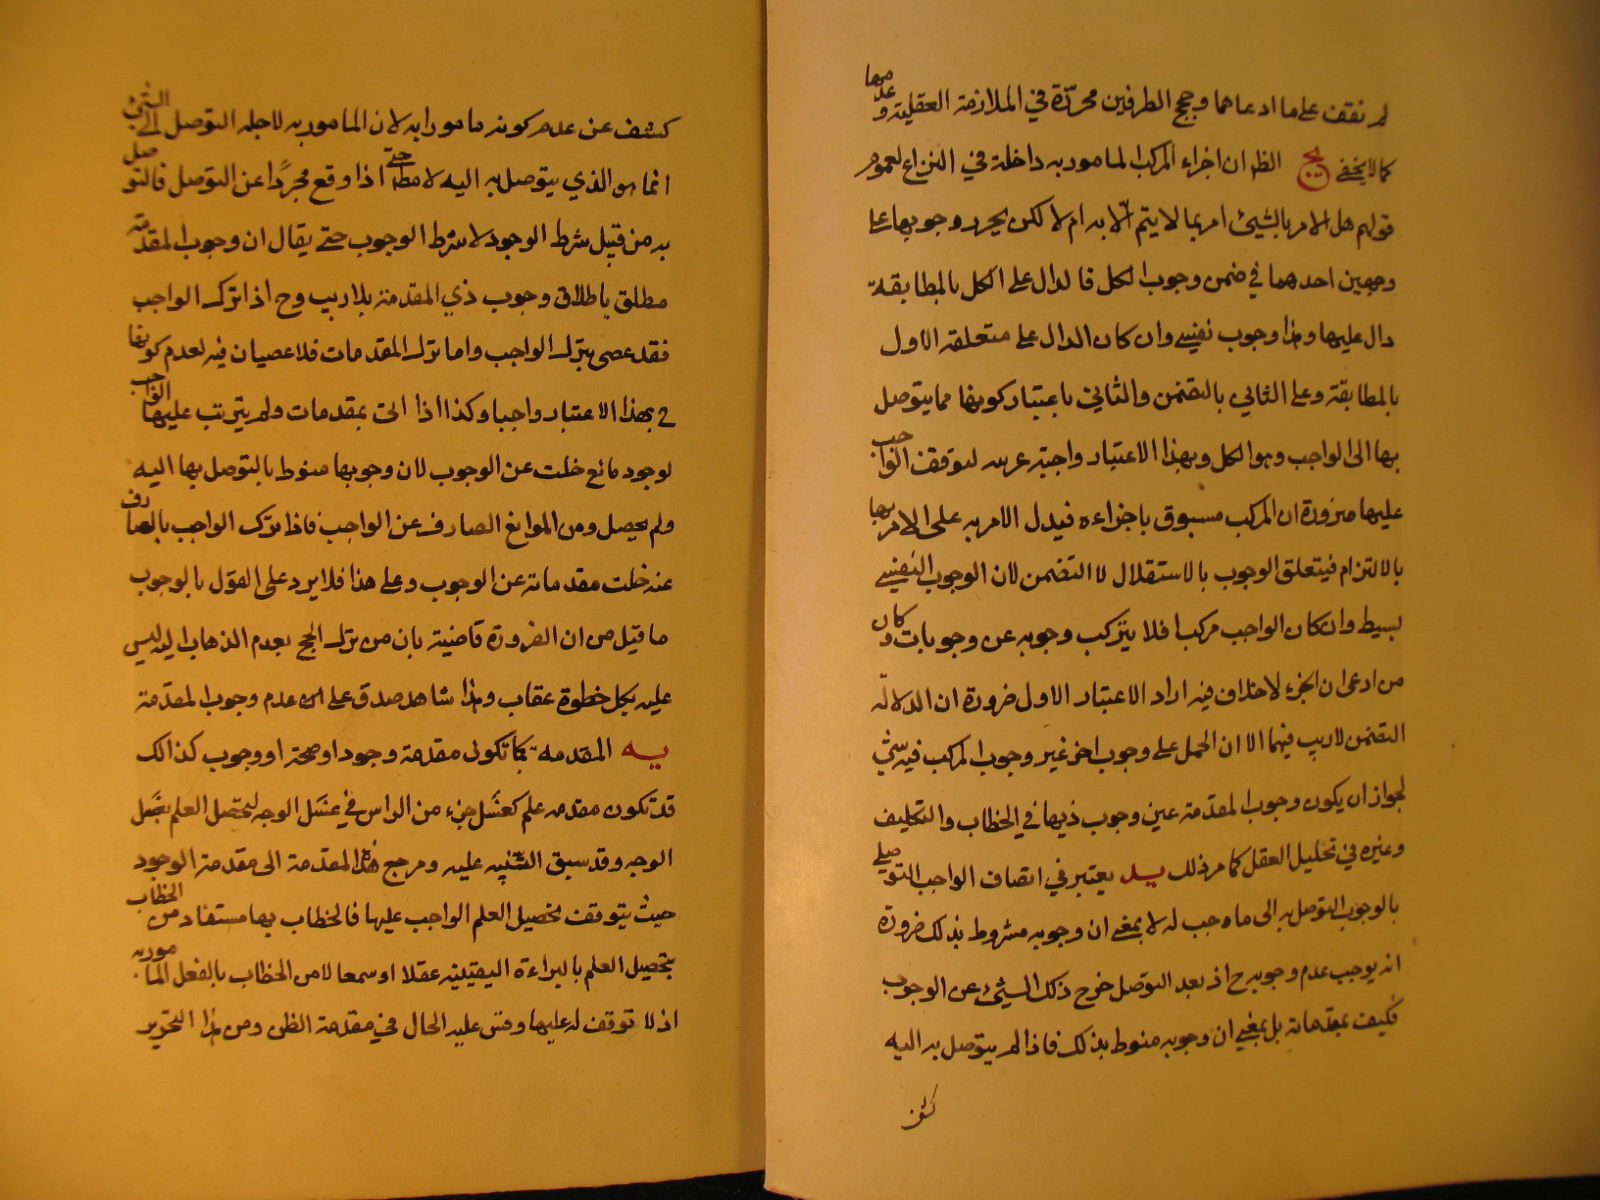 لم نقف على ما ادعاهما وحجج الطرفين محررة في الملازمة العقلية وعدمها
كما لا يخفى يج الظ ان اجزاء المركب المامور به داخلة في النزاع لعموم
قولهم هل الامر بالشيء امر بما لا يتم الا به ام لا لكن يجرد وجوبها على
وجهين احدهما في ضمن وجوب الكل فالدال على الكل بالمطابقة
دال عليها وهذا وجوب نفسي وان كان الدال على متعلقه الاول
بالمطابقة وعلى الثاني بالتضمن والثاني باعتبار كونها مما يتوصل
بها الى الواجب وهو الكل وبهذا الاعتبار واجبة غيريه لتوقف الواجب
عليها ضرورة ان المركب مسبوق باجزاءه فيدل الامر به على الامر بها
بالالتزام فيتعلق الوجوب بالاستقلال لا التضمن لان الوجوب النفسي
بسيط وان كان الواجب مركبا فلا يتركب وجوبه عن وجوبات وكان
من ادعى ان الجزء لا خلاف فيه اراد الاعتبار الاول ضرورة ان الدلالة
التضمن لا ريب فيها الا ان الحمل على وجوب اخر غير وجوب المركب فيه شيء
لجواز ان يكون وجوب المقدمة عين وجوب ذيها في الخطاب والتكليف
وغيره في تحليل العقل كما مر ذلك يد يعتبر في اتصاف الواجب التوصلي
بالوجوب التوصل به الى ما وجب له لا بمعنى ان وجوبه مشروط بذلك ضرورة
انه يوجب عدم وجوبه ح اذ بعد التوصل خرج ذلك الشيء عن الوجوب
فكيف بمقدماته بل بمعنى ان وجوبه منوط بذلك فاذا لم يتوصل به اليه
كشف
كشف عن عدم كونه مامورا به لان المامور به لاجله التوصل الى الشيء
انما هو الذي يتوصل به اليه لا مطا حتى اذا وقع مجردا عن التوصل فالتوصل
به من قبيل شرط الوجود لا شرط الوجوب حتى يقال ان وجوب المقدمة
مطلق باطلاق وجوب ذي المقدمة بلا ريب وح اذا ترك الواجب
فقد عصى بترك الواجب واما ترك المقدمات فلا عصيان فيه لعدم كونها
ح بهذا الاعتبار واجبا وكذا اذا اتى بمقدمات ولم يترتب عليها الواجب
لوجود مانع خلت عن الوجوب لان وجوبها منوط بالتوصل بها اليه
ولم يحصل ومن الموانع الصارف عن الواجب فاذا ترك الواجب بالصارف
عنه خلت مقدماته عن الوجوب وعلى هذا فلا يرد على القول بالوجوب
ما قيل من ان الضرورة قاضية بان من ترك الحج بعدم الذهاب اليه ليس
عليه بكل خطوة عقاب وهذا شاهد صدق على عدم وجوب المقدمة
يه المقدمه كما تكون مقدمة وجود او صحة او وجوب كذالك
قد تكون مقدمه علم كغسل جزء من الراس في غسل الوجه لتحصل العلم بغسل
الوجه وقد سبق التنبيه عليه ومرجع هذه المقدمة الى مقدمة الوجود
حيث يتوقف تحصيل العلم الواجب عليها فالخطاب بها مستفاد من الخطاب
بتحصيل العلم بالبراءة اليقينية عقلا او سمعا لا من الخطاب بالفعل المامور به
اذ لا توقف له عليها وقس عليه الحال في مقدمة الظن ومن هذا التحرير